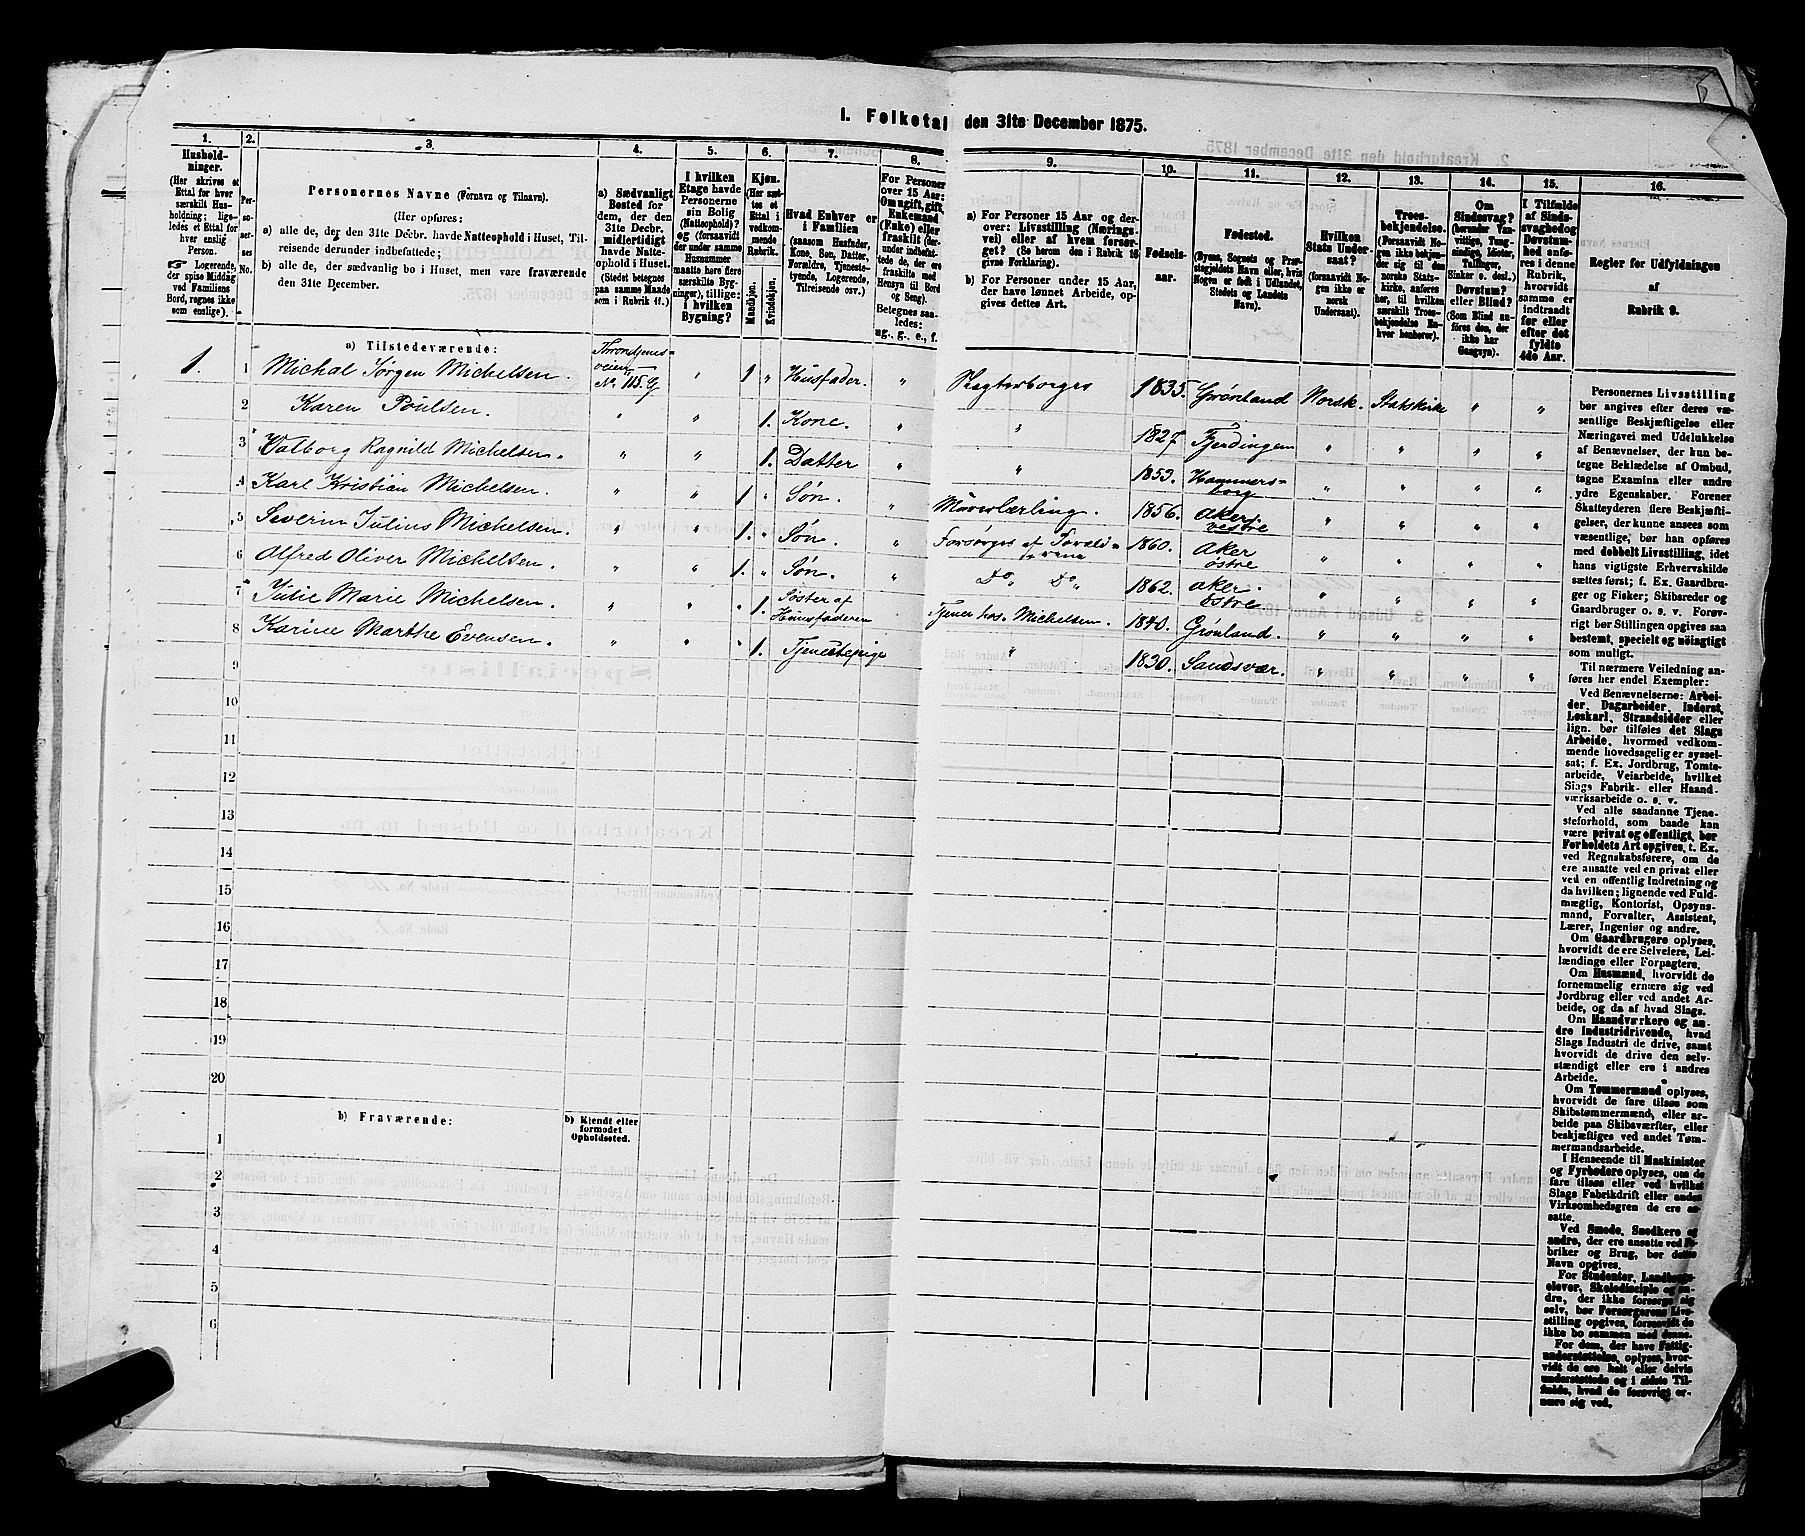 I. Folketal den 31te December 1875.
1. 2. 3. 4. 5. 6. 7. 8. 9. 10. 11. 12. 13. 14. 15. 16.
Husholdninger.
(Her skrives et
Ettal for hver
særskilt Husholdning; ligeledes et Ettal for
hver enslig
Person.
☞ Logerende,
der spise Middag
ved Familiens
Bord, regnes ikke
som enslige).
Personernes No.
Personernes Navne (Fornavn og Tilnavn).
(Her opføres:
a) alle de, der den 31te Decbr. havde Natteophold i Huset, Tilreisende derunder indbefattede;
b) alle de, der sædvanlig bo i Huset, men vare fraværende
den 31te December.
a) Sædvanligt
Bosted for
dem, der den
31te Decbr.
midlertidigt
havde Natteophold i Huset.
(Stedet betegnes
paa samme Maade
som i Rubrik 11.)
I hvilken
Etage havde
Personerne
sin Bolig
(Natteophold)?
og (forsaavidt
der under samme
Husnummer
maatte høre flere
særskilte Bygninger), tillige:
i hvilken
Bygning?
Kjøn.
(Her sættes et
Ettal i
vedkommende
Rubrik.
Mandkjøn.
Kvindekjøn.
Hvad Enhver er
i Familien
(saasom Husfader,
Kone, Søn, Datter,
Forældre, Tjenestetyende, Logerende,
Tilreisende osv.)
For Personer
over 15 Aar:
Om ugift, gift,
Enkemand
(Enke) eller
fraskilt
Hensyn til Bord
og Seng).
Betegnes saaledes:
ug., g., e., f.
a) For Personer 15 Aar og derover: Livsstilling (Næringsvei) eller af hvem forsørget? (Se herom den i Rubrik 16
givne Forklaring).
b) For Personer under 15 Aar,
der have lønnet Arbeide, opgives dettes Art.
Fødselsaar.
Fødested.
(Byens, Sognets og Præstegjeldets Navn eller, hvis
Nogen er født i Udlandet,
Stedets og Landets
Navn).
Hvilken
Stats Undersaat?
(forsaavidt Nogen ikke er
norsk
Undersaat).
Troesbekjendelse.
(Forsaavidt Nogen ikke bekjender sig til den
norske Statskirke, anføres
her, til hvilken
særskilt Troesbekjendelse Enhver henhører).
Om
Sindssvag?
(herunder Vanvittige, Tungsindige, Idioter,
Tullinger,
Sinker o. desl.)
Døvstum?
eller Blind?
(Som Blind anføres den, der
ikke har
Gangsyn).
I Tilfælde
af Sindssvaghed og
Døvstumhed anføres i denne
Rubrik,
hvorvidt
samme er
indtraadt
før eller
efter det
fyldte
4de Aar.
Regler for Udfyldningen
af
Rubrik 9.
a) Tilstedeværende:
1. 1 Michal Jørgen Michelsen. Throndjemsveien No. 115 G " 1 " Husfader. " Slagterborger 1835. Grønland Norsk. Statskirke " "
2 Karen Poulsen. " " 1. Kone. " " 1827. Fjerdingen " " " "
3 Valborg Ragnild Michelsen. " " 1. Datter " " 1853. Hammersborg " " " "
4 Karl Kristian Michelsen. " " 1 " Søn. " Murerlærling. 1856. Aker vestre " " " "
5 Severin Julius Michelsen. " " 1. " Søn. " Forsørges af Forældrene 1860. Aker østre " " " "
6 Alfred Oliver Michelsen. " " 1. " Søn. " Do " Do " 1862. Aker Østre " " " "
7 Julie Marie Michelsen. " " " 1. Søster af Huusfaderen Tjener hos. Michelsen. 1840. Grønland. " " " "
8 Karine Marthe Evensen. " " " 1. Tjenestepige " 1830. Sandsvær. " " " "
9
10
11
12
13
14
15
16
17
18
19
20
b) Fraværende: b) Kjendt eller
formodet
Opholdssted.
1
2
3
4
5
6
Personernes Livsstilling
bør angives efter deres væsentlige Beskjæftigelse eller
Næringsvei med Udelukkelse
af Benævnelser, der kun betegne Beklædelse af Ombud,
tagne Examina eller andre
ydre Egenskaber. Forener
Skatteyderen flere Beskjæftigelser, der kunne ansees som
væsentlige, bør han opføres
med dobbelt Livsstilling, idet
hans vigtigste Erhvervskilde
sættes først; f. Ex. Gaardbruger og Fisker; Skibsreder og
Gaardbruger o. s. v. Forøvrigt bør Stillingen opgives saa
bestemt, specielt og nøiagtigt
som muligt.
Til nærmere Veiledning anføres her endel Exempler:
Ved Benævnelserne: Arbeider, Dagarbeider, Inderst,
Løskarl, Strandsidder eller
lign. bør tilføies det Slags
Arbeide, hvormed vedkommende hovedsagelig er sysselsat; f. Ex. Jordbrug, Tomtearbeide, Veiarbeide, hvilket
Slags Fabrik- eller Haandværksarbeide o. s. v.
Ved alle saadanne Tjenesteforhold, som baade kan
være privat og offentligt, bør
Forholdets Art opgives, t. Ex.
ved Regnskabsførere, om de
ere ansatte ved en privat eller
ved en offentlig Indretning og
da hvilken; lignende ved Fuldmægtig, Kontorist, Opsynsmand, Forvalter, Assistent,
Lærer, Ingeniør og andre.
Om Gaardbrugere oplyses,
hvorvidt de ere Selveiere, Leilændinge eller Forpagtere.
Om Husmænd, hvorvidt de
fornemmelig ernære sig ved
Jordbrug eller ved andet Arbeide, og da af hvad Slags.
Om Haandværkere og andre Industridrivende, hvad
Slags Industri de drive, samt
hvorvidt de drive den selvstændigt eller ere i andres
Arbeide.
Om Tømmermænd oplyses,
hvorvidt de fare tilsøs som
Skibstømmermænd, eller arbeide paa Skibsværfter, eller
beskjæftiges ved andet Tømmermandsarbeide.
I Henseende til Maskinister
og Fyrbødere oplyses, om de
fare tilsøs eller ved hvilket
Slags Fabrikdrift eller anden
Virksomhedsgren de ere ansatte.
Ved Smede, Snedkere og
andre, der ere ansatte ved Fabriker og Brug, bør dettes
Navn opgives.
For Studenter, Landbrugselever, Skoledisciple og andre, der ikke forsørge sig
selv, bør Forsørgerens Livsstilling opgives, forsaavidt de
ikke bo sammen med denne.
For dem, der have Fattigunderstøttelse, oplyses, hvorvidt de ere helt eller delvis
understøttede og i sidste Tilfælde, hvad de forøvrigt ernære sig ved.